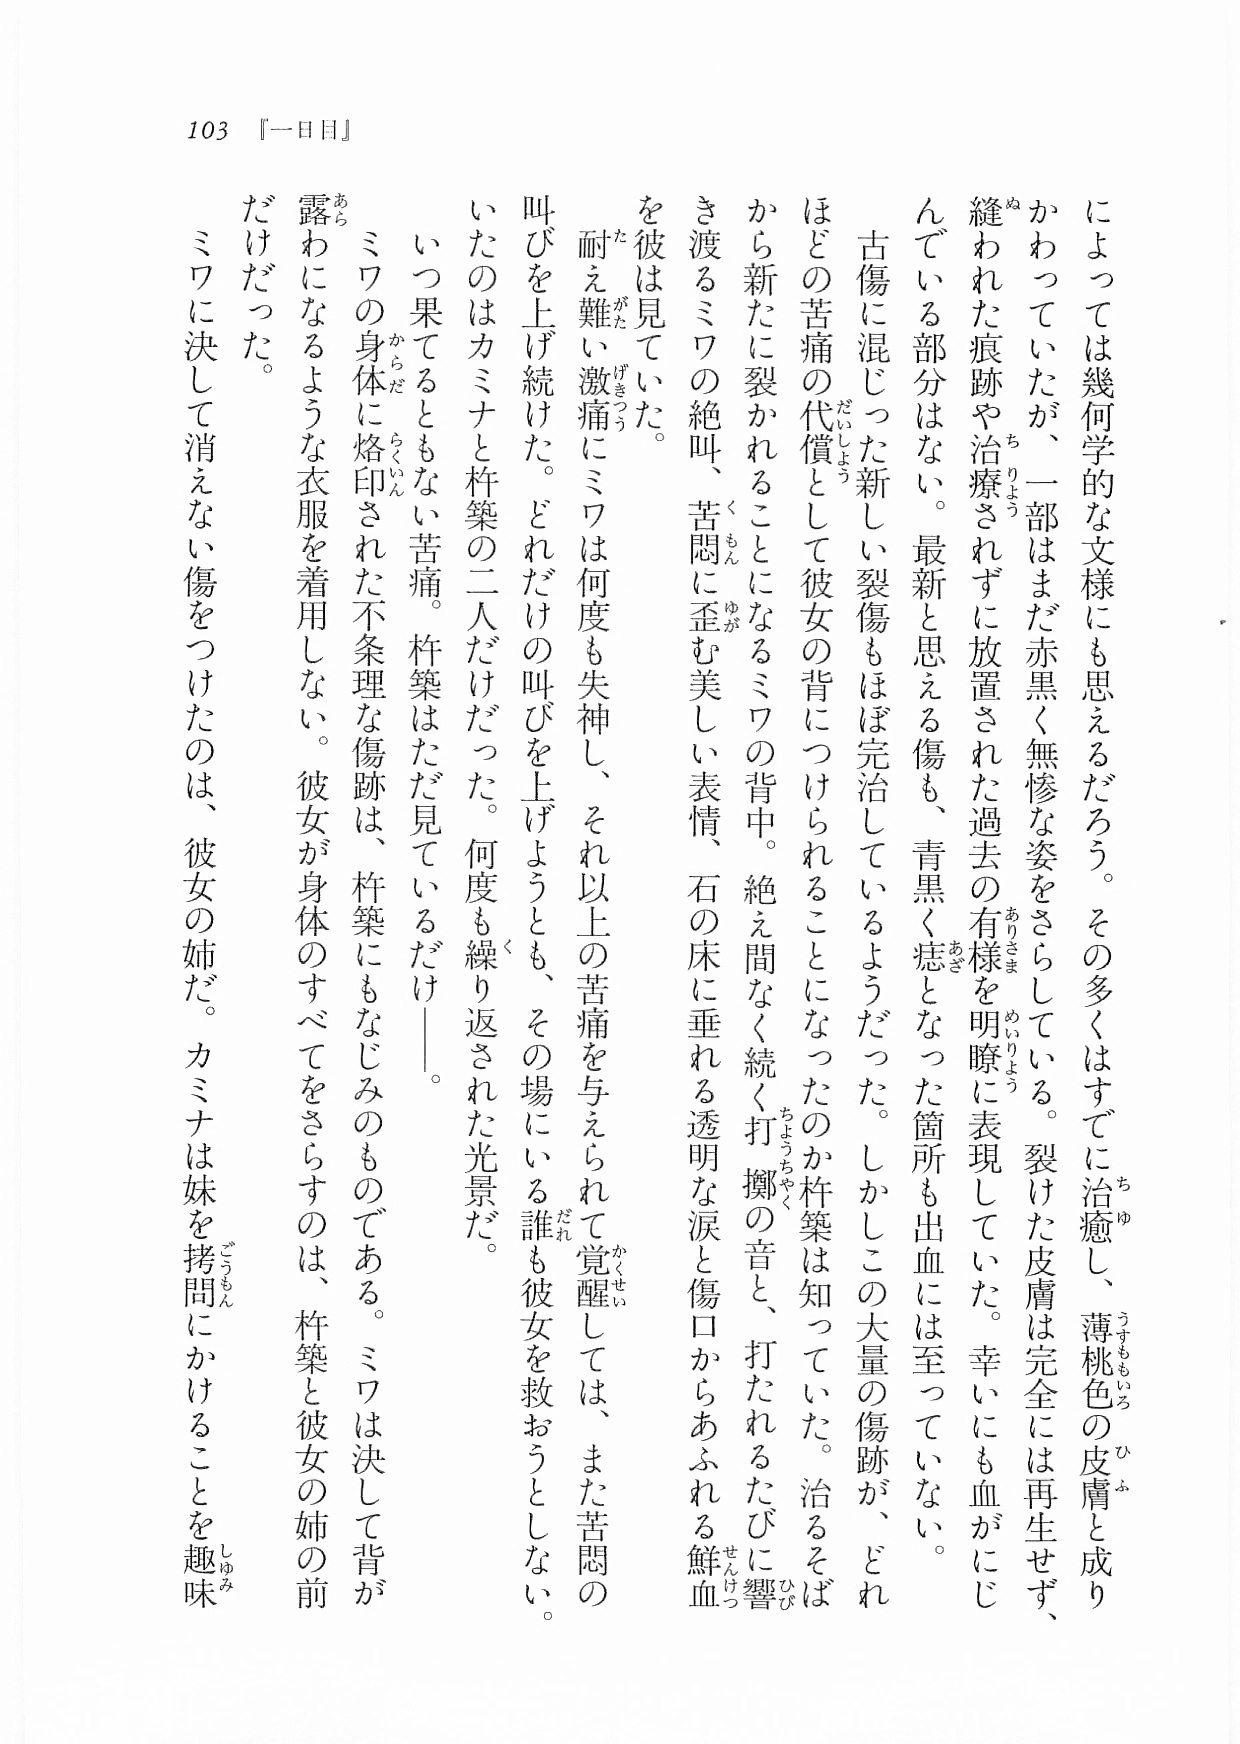 103 『一日目』
によっては幾何学的な文様にも思えるだろう。その多くはすでに治癒し、薄桃色の皮膚と成り
かわっていたが、一部はまだ赤黒く無惨な姿をさらしている。裂けた皮膚は完全には再生せず、
縫われた痕跡や治療されずに放置された過去の有様を明瞭に表現していた。幸いにも血がにじ
んでいる部分はない。最新と思える傷も、青黒く痣となった箇所も出血には至っていない。
古傷に混じった新しい裂傷もほぼ完治しているようだった。しかしこの大量の傷跡が、どれ
ほどの苦痛の代償として彼女の背につけられることになったのか杵築は知っていた。治るそば
から新たに裂かれることになるミワの背中。絶え間なく続く打擲の音と、打たれるたびに響
き渡るミワの絶叫、苦悶に歪む美しい表情、石の床に垂れる透明な涙と傷口からあふれる鮮血
を彼は見ていた。
耐え難い激痛にミワは何度も失神し、それ以上の苦痛を与えられて覚醒しては、また苦悶の
叫びを上げ続けた。どれだけの叫びを上げようとも、その場にいる誰も彼女を救おうとしない。
いたのはカミナと杵築の二人だけだった。何度も繰り返された光景だ。
いつ果てるともない苦痛。杵築はただ見ているだけ――。
ミワの身体に烙印された不条理な傷跡は、杵築にもなじみのものである。ミワは決して背が
露わになるような衣服を着用しない。彼女が身体のすべてをさらすのは、杵築と彼女の姉の前
だけだった。
ミワに決して消えない傷をつけたのは、彼女の姉だ。カミナは妹を拷問にかけることを趣味